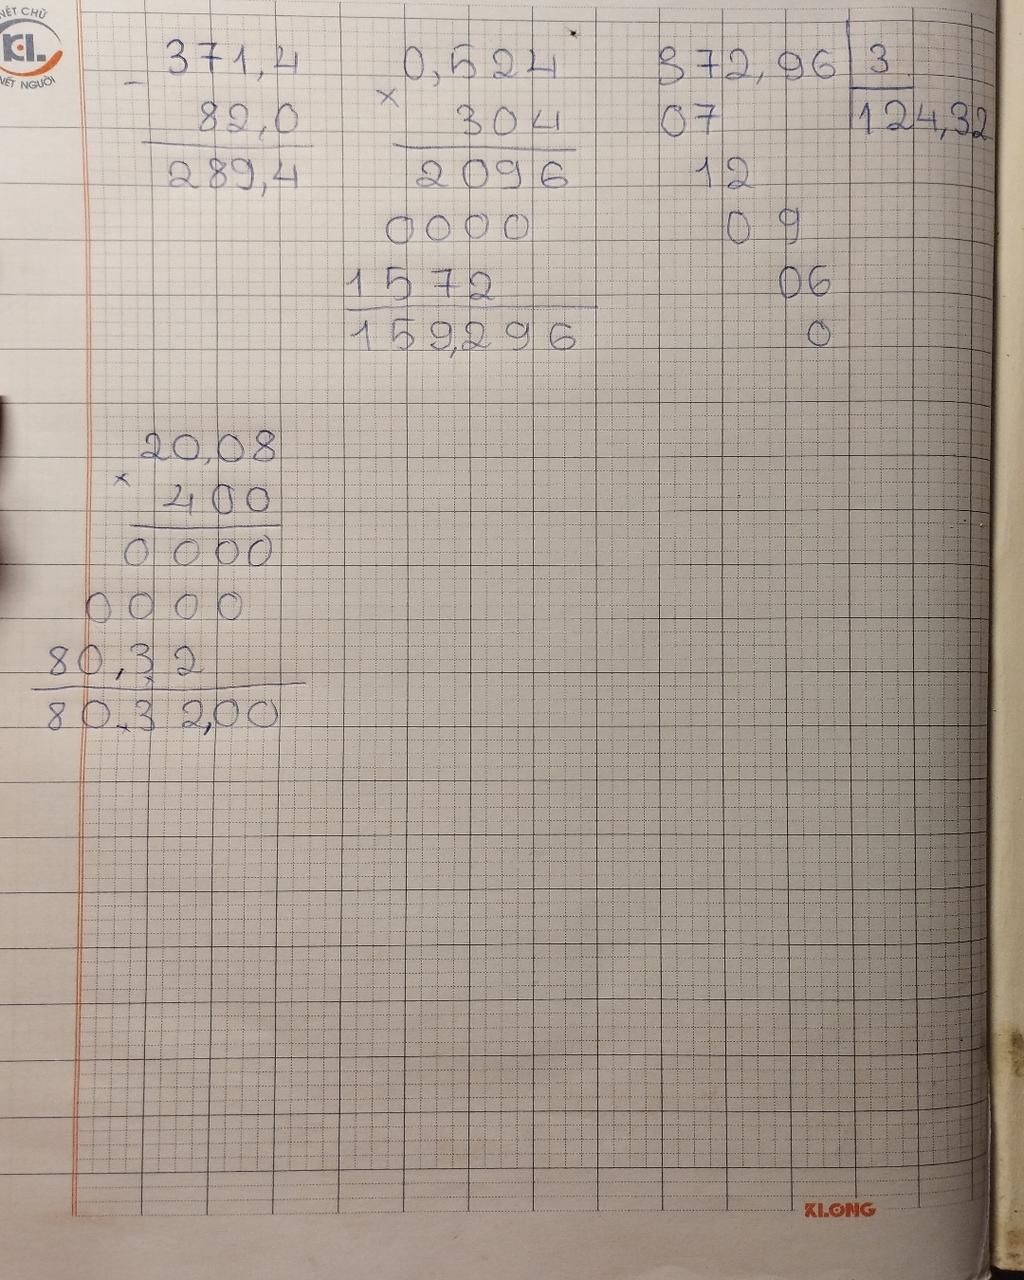 NÉT CHỮ
KL
NÉT NGƯỜI
371,4
-
82,0
289,4
0,524
×
304
2096
0000
1572
159,296
372,96 3
07 124,32
12
09
06
0
20,08
×
400
0000
0000
80,32
80.32,00
KLONG